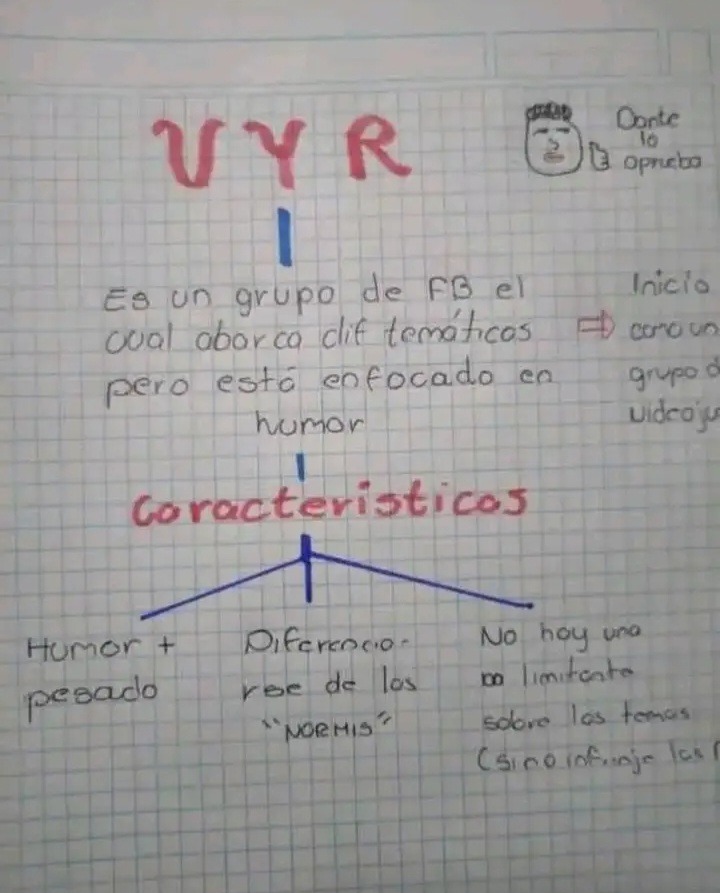 VYR
Dante
lo
aprueba
Es un grupo de FB el
cual abarca dif temáticas
pero está enfocado en
humor
⇒
Inicio
como un
grupo d
videoju
Caracteristicas
Humor +
pesado
Diferencia-
rse de los
"NORMIS"
No hay una
limitante
sobre los temas
(si no infringe las